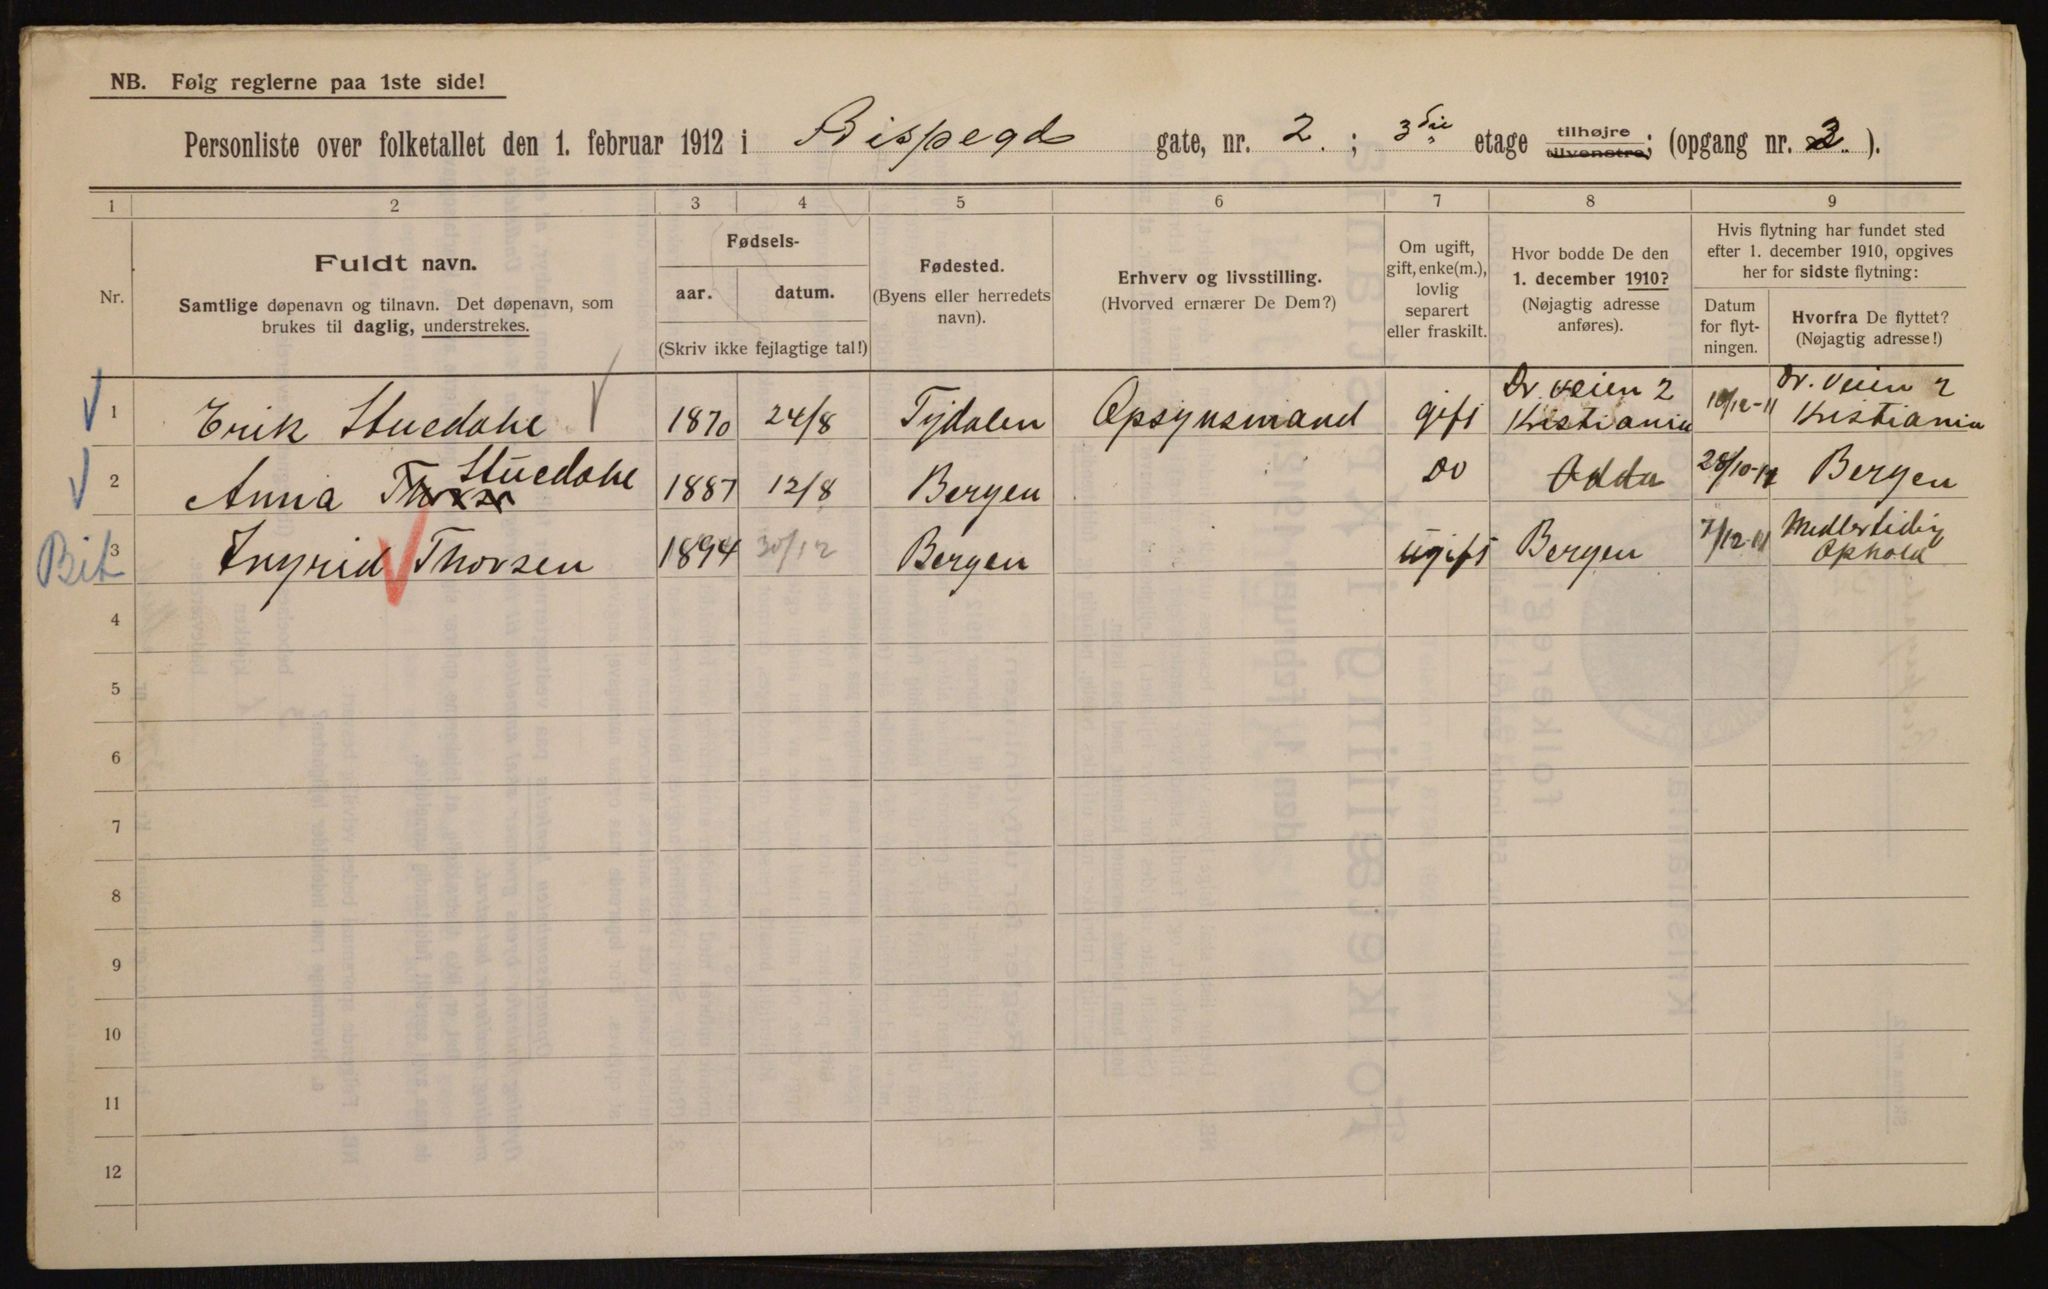 NB. Følg reglerne paa 1ste side!
Personliste over folketallet den 1. februar 1912 i Bispegd gate, nr. 2. ; 3die etage tilhøjre tilvenstre; (opgang nr. 2. ).
1 2 3 4 5 6 7 8 9
Nr.
Fuldt navn.
Samtlige døpenavn og tilnavn. Det døpenavn, som
brukes til daglig, understrekes.
Fødsels-
aar. datum.
(Skriv ikke fejlagtige tal!)
Fødested.
(Byens eller herredets
navn).
Erhverv og livsstilling.
(Hvorved ernærer De Dem?)
Om ugift,
gift, enke(m.),
lovlig
separert
eller fraskilt.
Hvor bodde De den
1. december 1910?
(Nøjagtig adresse
anføres).
Hvis flytning har fundet sted
efter 1. december 1910, opgives
her for sidste flytning:
Datum
for flyt-
ningen.
Hvorfra De flyttet?
(Nøjagtig adresse!)
1 Erik Stuedahl 1870 24/8 Tydalen Opsynsmand gift Dr. veien 2 Kristiania 10/12-11 Dr. veien 2 Kristiania
2 Anna Thorsen Stuedahl 1887 12/8 Bergen Do Odda 28/10-11 Bergen
Bit 3 Ingrid Thorsen 1894 30/12 Bergen ugift Bergen 7/12-11 Midlertidig Ophold
4
5
6
7
8
9
10
11
12